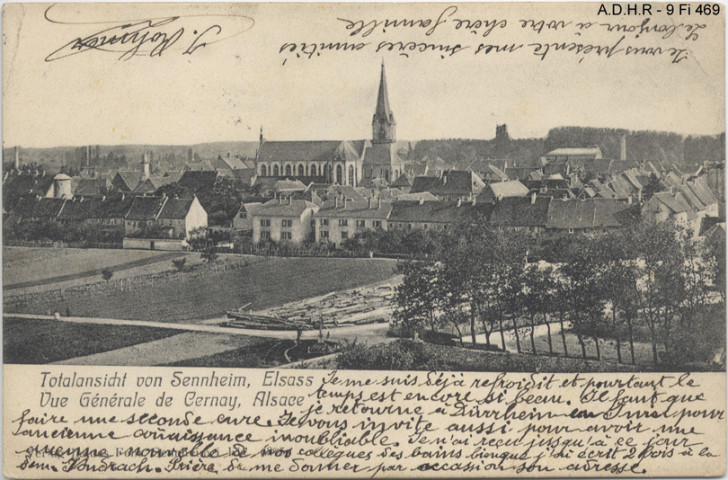 A.D.H.R - 9 Fi 469
Totalansicht von Sennheim, Elsass
Vue Générale de Cernay, Alsace
Je me suis déjà refroidit et pourtant le
temps est encore si beau. Il faut que
je retourne à Dürrheim en mai pour
faire une seconde cure. Je vous invite aussi pour avoir une
ancienne connaissance inoubliable. Je n'ai reçu jusqu'à ce jour
aucune nouvelle de nos collègues des bains bienque j'ai écrit 2 fois à la
dem. Prière de me donner par occasion son adresse.
Je vous présente mes sincères amitiés
le bonjour à votre chère famille